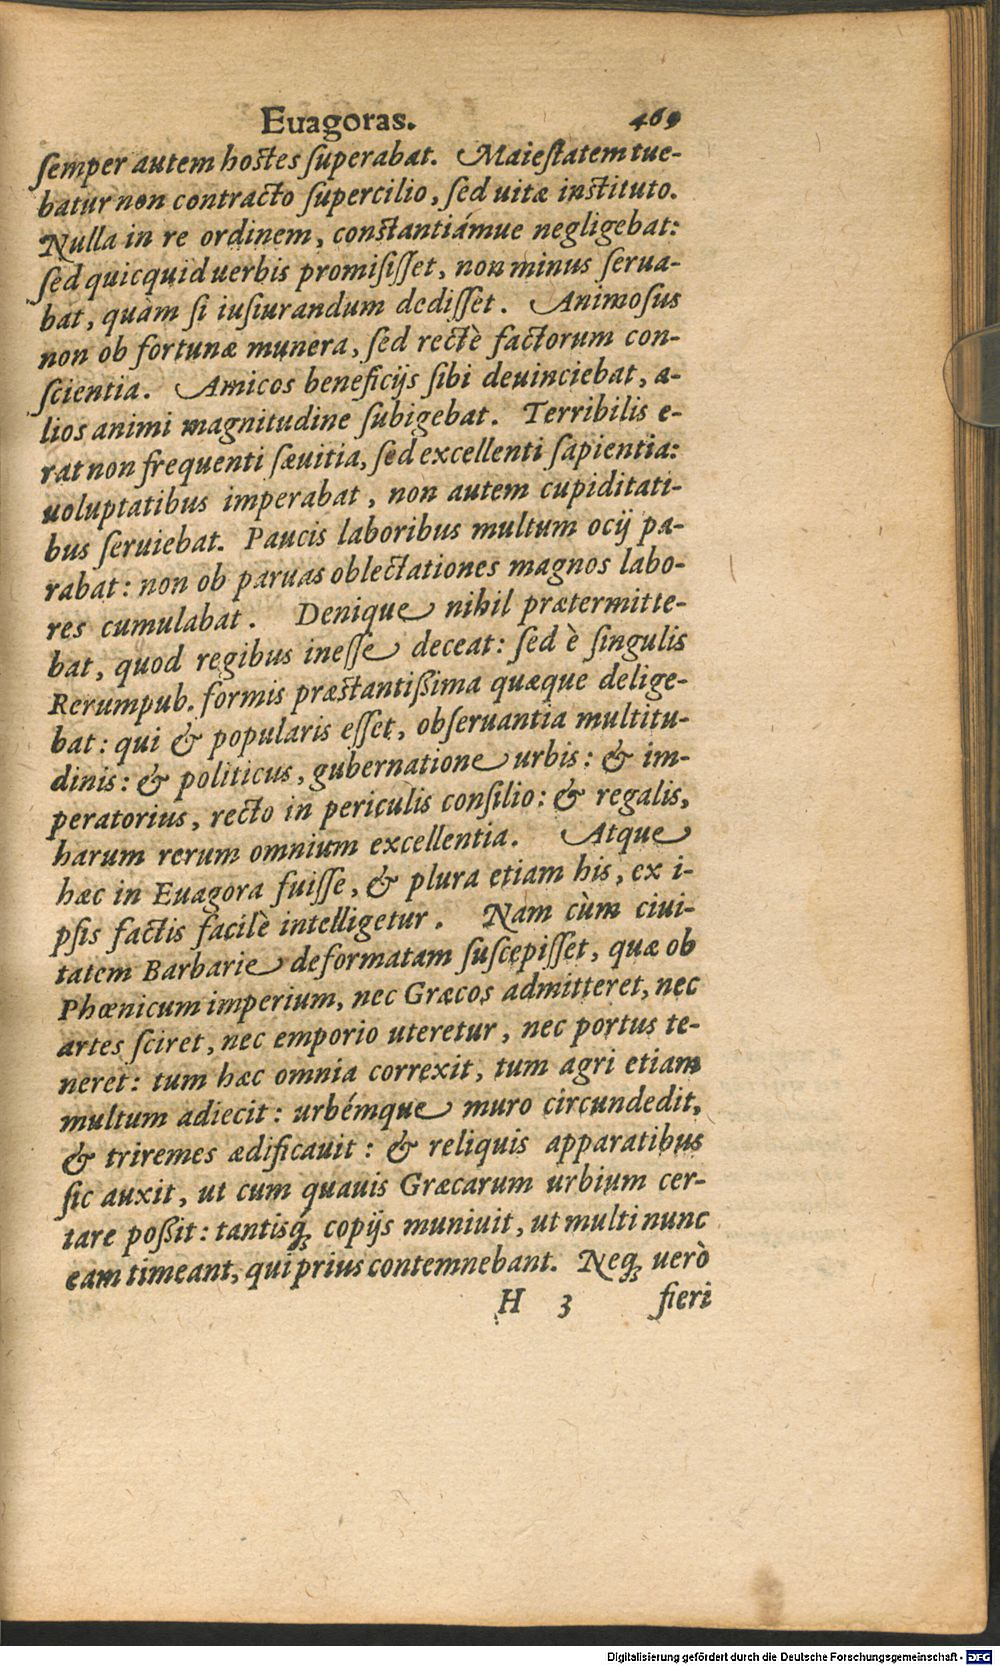 Euagoras. 469
semper autem hostes superabat. Maiestatem tue-
batur non contracto supercilio, sed uitæ instituto.
Nulla in re ordinem, constantiámue negligebat:
sed quicquid uerbis promisisset, non minus serua-
bat, quàm si iusiurandum dedisset. Animosus
non ob fortunæ munera, sed rectè factorum con-
scientia. Amicos beneficijs sibi deuinciebat, a-
lios animi magnitudine subigebat. Terribilis e-
rat non frequenti sæuitia, sed excellenti sapientia:
uoluptatibus imperabat, non autem cupiditati-
bus seruiebat. Paucis laboribus multum ocij pa-
rabat: non ob paruas oblectationes magnos labo-
res cumulabat. Denique nihil prætermitte-
bat, quod regibus inesse deceat: sed è singulis
Rerumpub. formis præstantißima quæque delige-
bat: qui & popularis esset, obseruantia multitu-
dinis: & politicus, gubernatione urbis: & im-
peratorius, recto in periculis consilio: & regalis,
harum rerum omnium excellentia. Atque
hæc in Euagora fuisse, & plura etiam his, ex i-
psis factis facilè intelligetur. Nam cùm ciui-
tatem Barbarie deformatam suscepisset, quæ ob
Phœnicum imperium, nec Græcos admitteret, nec
artes sciret, nec emporio uteretur, nec portus te-
neret: tum hæc omnia correxit, tum agri etiam
multum adiecit: urbémque muro circundedit,
& triremes ædificauit: & reliquis apparatibus
sic auxit, ut cum quauis Græcarum urbium cer-
tare poßit: tantisq́; copijs muniuit, ut multi nunc
eam timeant, qui prius contemnebant. Neq; uerò
H 3 fieri
Digitalisierung gefördert durch die Deutsche Forschungsgemeinschaft - DFG